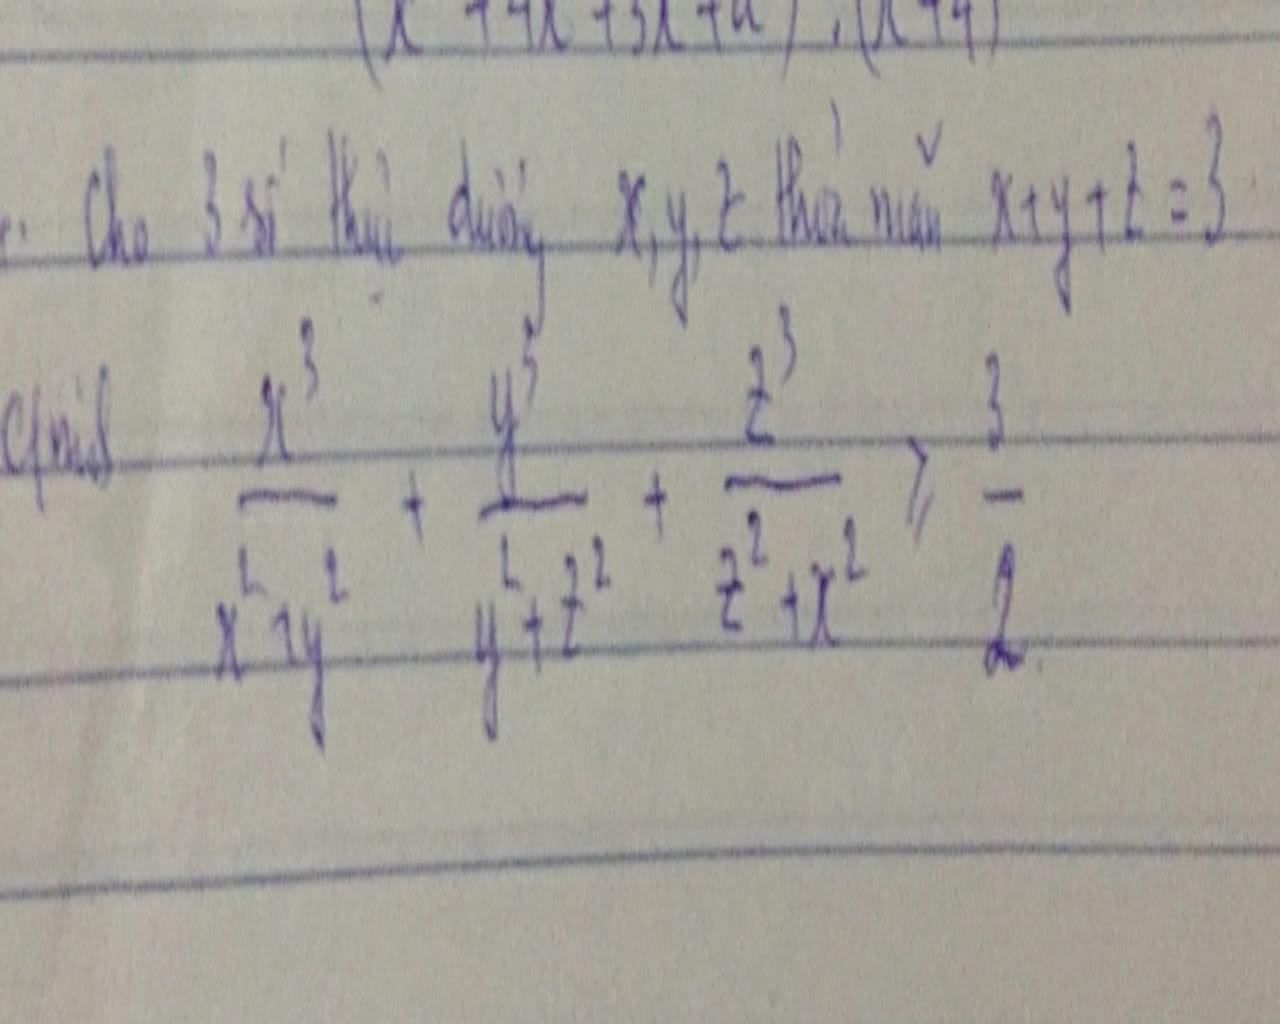 (x + 4x + 3x + a) . (x + 4)
Cho 3 số thực dương x, y, z thỏa mãn x+y+z=3
CMR x³/(x²+y²) + y³/(y²+z²) + z³/(z²+x²) ≥ 3/2